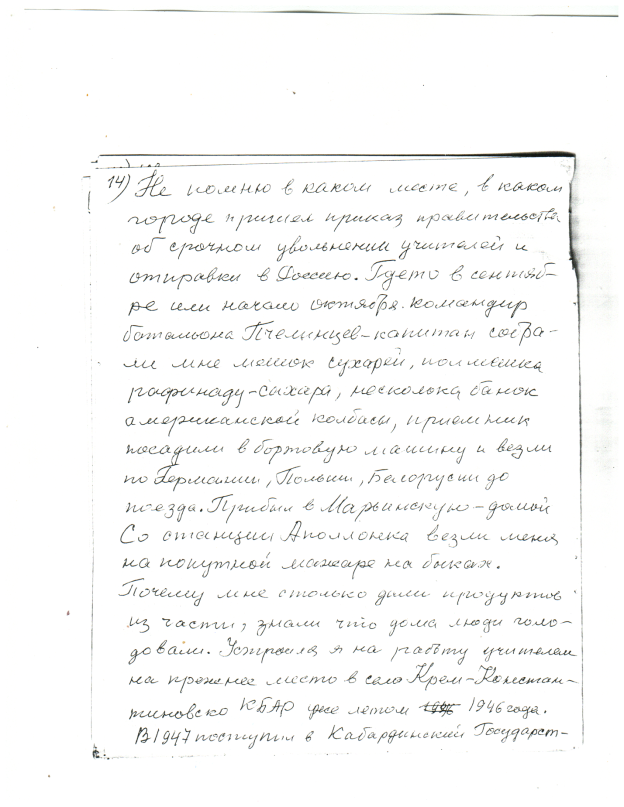 14) Не помню в каком месте, в каком
городе пришел приказ правительства
об срочном увольнении учителей и
отправки в Россию. Гдето в сентяб-
ре или начало октября. командир
батальона Пчелинцев-капитан собра-
ли мне мешок сухарей, пол мешка
рафинаду-сахара, несколока банок
американской колбасы, приемник
посадили в бортовую машину и везли
по Германии, Польши, Белорусии до
поезда. Прибыл в Марьинскую-домой
Со станции Аполлонка везли меня
на попутной мажаре на быках.
Почему мне столько дали продуктов
из части, знали что дома люди голо-
довали. Устроился я на работу учителем
на прежнее место в село Крем-Констан-
тиновско КБАР уже летом 1946 года.
В 1947 поступил в Кабардинский Государст-